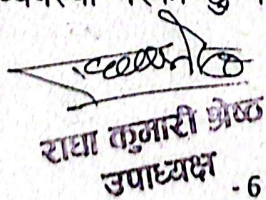 राधा कुमारी श्रेष्ठ
उपाध्यक्ष
- 6